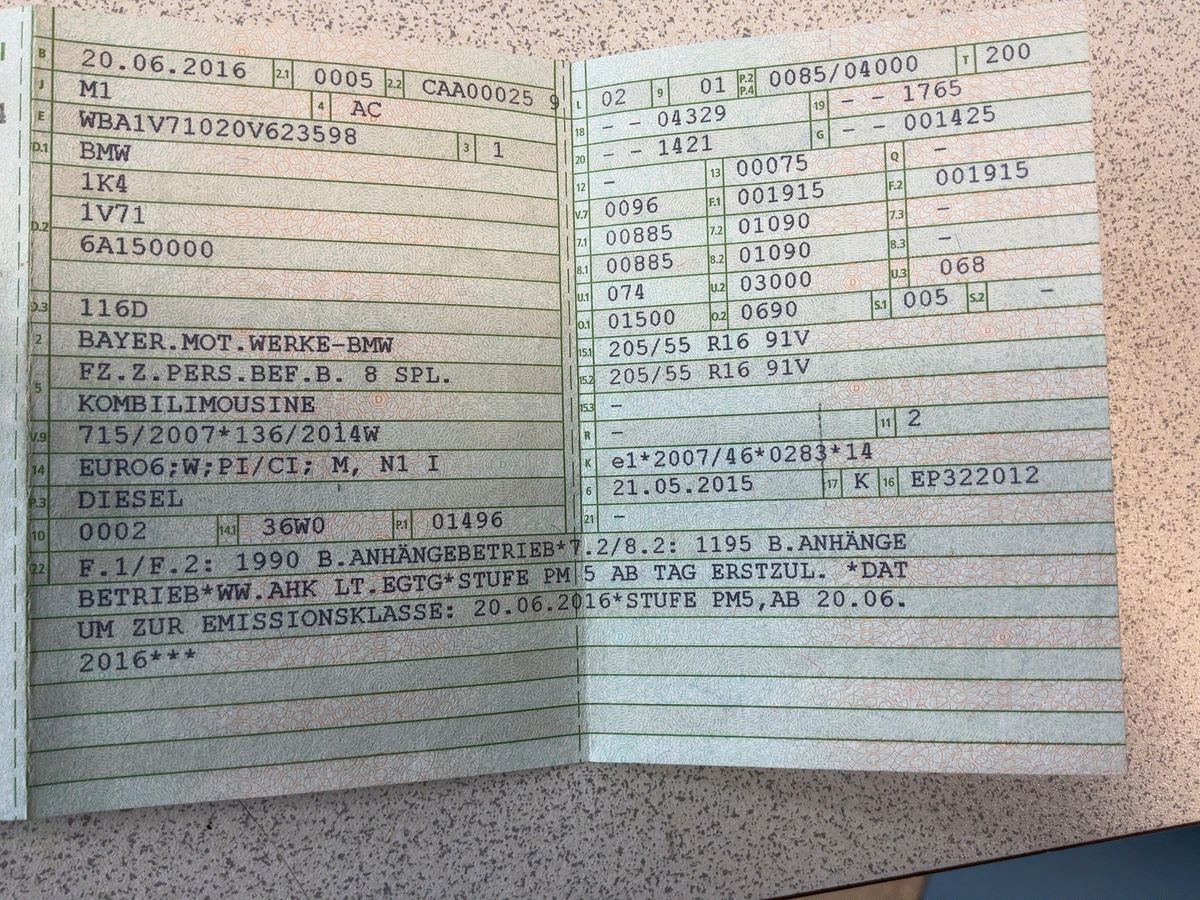 B 20.06.2016 2.1 0005 2.2 CAA00025 9
J M1 4 AC
E WBA1V71020V623598 3 1
D.1 BMW
1K4
D.2 1V71
6A150000
D.3 116D
2 BAYER.MOT.WERKE-BMW
5 FZ.Z.PERS.BEF.B. 8 SPL.
KOMBILIMOUSINE
V.9 715/2007*136/2014W
14 EURO6;W;PI/CI; M, N1 I
P.3 DIESEL
10 0002 14.1 36W0 P.1 01496
L 02 9 01 P.2 P.4 0085/04000 T 200
18 - - 04329 19 - - 1765
20 - - 1421 G - - 001425
12 - 13 00075 Q -
V.7 0096 F.1 001915 F.2 001915
7.1 00885 7.2 01090 7.3 -
8.1 00885 8.2 01090 8.3 -
U.1 074 U.2 03000 U.3 068
O.1 01500 O.2 0690 S.1 005 S.2 -
15.1 205/55 R16 91V
15.2 205/55 R16 91V
15.3 -
R - 11 2
K e1*2007/46*0283*14
6 21.05.2015 17 K 16 EP322012
21 -
22 F.1/F.2: 1990 B.ANHÄNGEBETRIEB*7.2/8.2: 1195 B.ANHÄNGE
BETRIEB*WW.AHK LT.EGTG*STUFE PM 5 AB TAG ERSTZUL. *DAT
UM ZUR EMISSIONSKLASSE: 20.06.2016*STUFE PM5,AB 20.06.
2016***